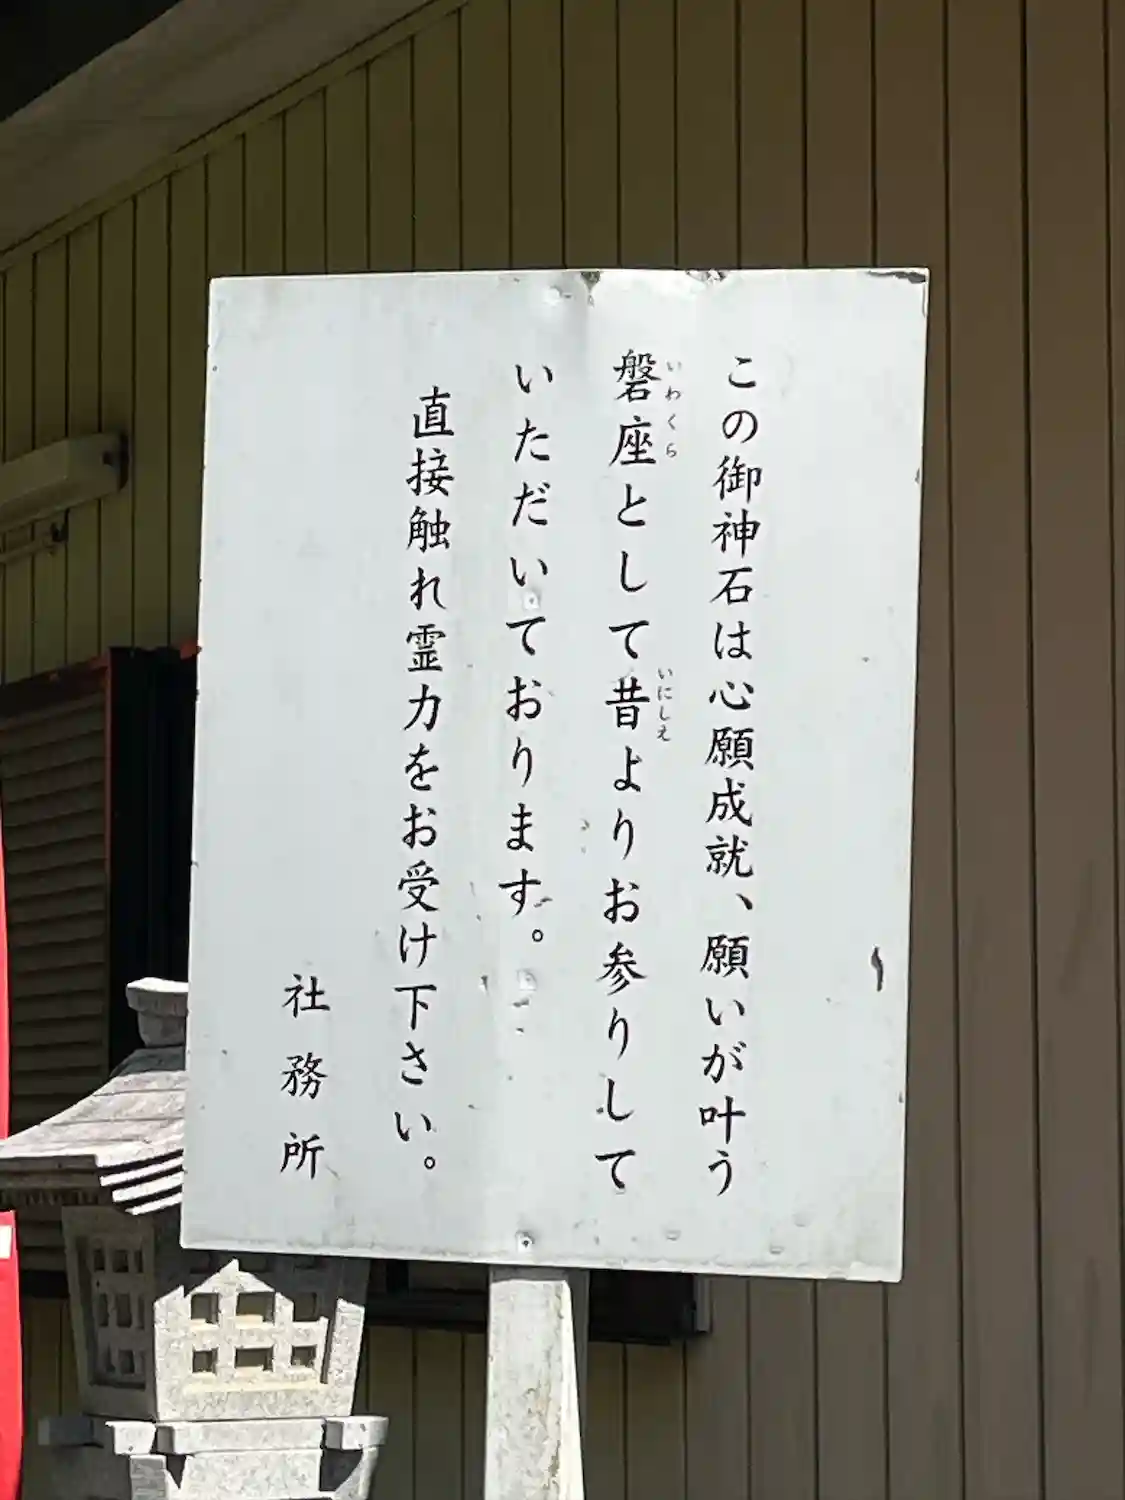 この御神石は心願成就、願いが叶う
磐座として昔よりお参りして
いわくら
いにしえ
いただいております。
直接触れ霊力をお受け下さい。
社務所